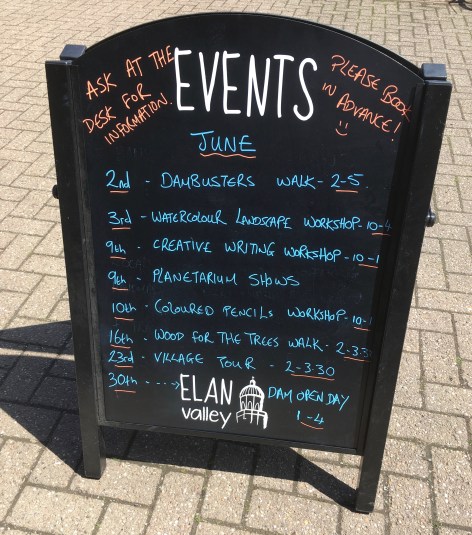 ASK AT THE
DESK FOR
INFORMATION.
EVENTS
PLEASE BOOK
IN ADVANCE!
JUNE
2nd - DAMBUSTERS WALK - 2-5.
3rd - WATERCOLOUR LANDSCAPE WORKSHOP - 10-4
9th - CREATIVE WRITING WORKSHOP - 10-1
9th - PLANETARIUM SHOWS
10th - COLOURED PENCILS WORKSHOP - 10-1
16th - WOOD FOR THE TREES WALK - 2-3.30
23rd - VILLAGE TOUR - 2-3.30
30th ----> ELAN valley DAM OPEN DAY
1-4